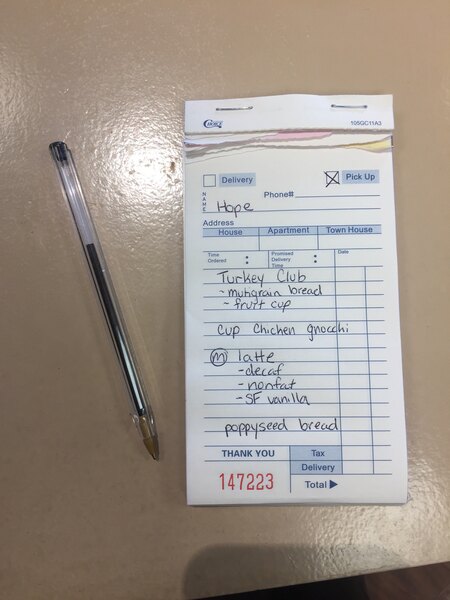 CHOICE
105GC11A3
Delivery
Pick Up
NAME
Phone#
Hope
Address
House Apartment Town House
Time Ordered : Promised Delivery Time : Date
Turkey Club
- multigrain bread
- fruit cup
Cup Chicken gnocchi
m latte
- decaf
- nonfat
- SF vanilla
poppyseed bread
THANK YOU Tax
Delivery
147223 Total